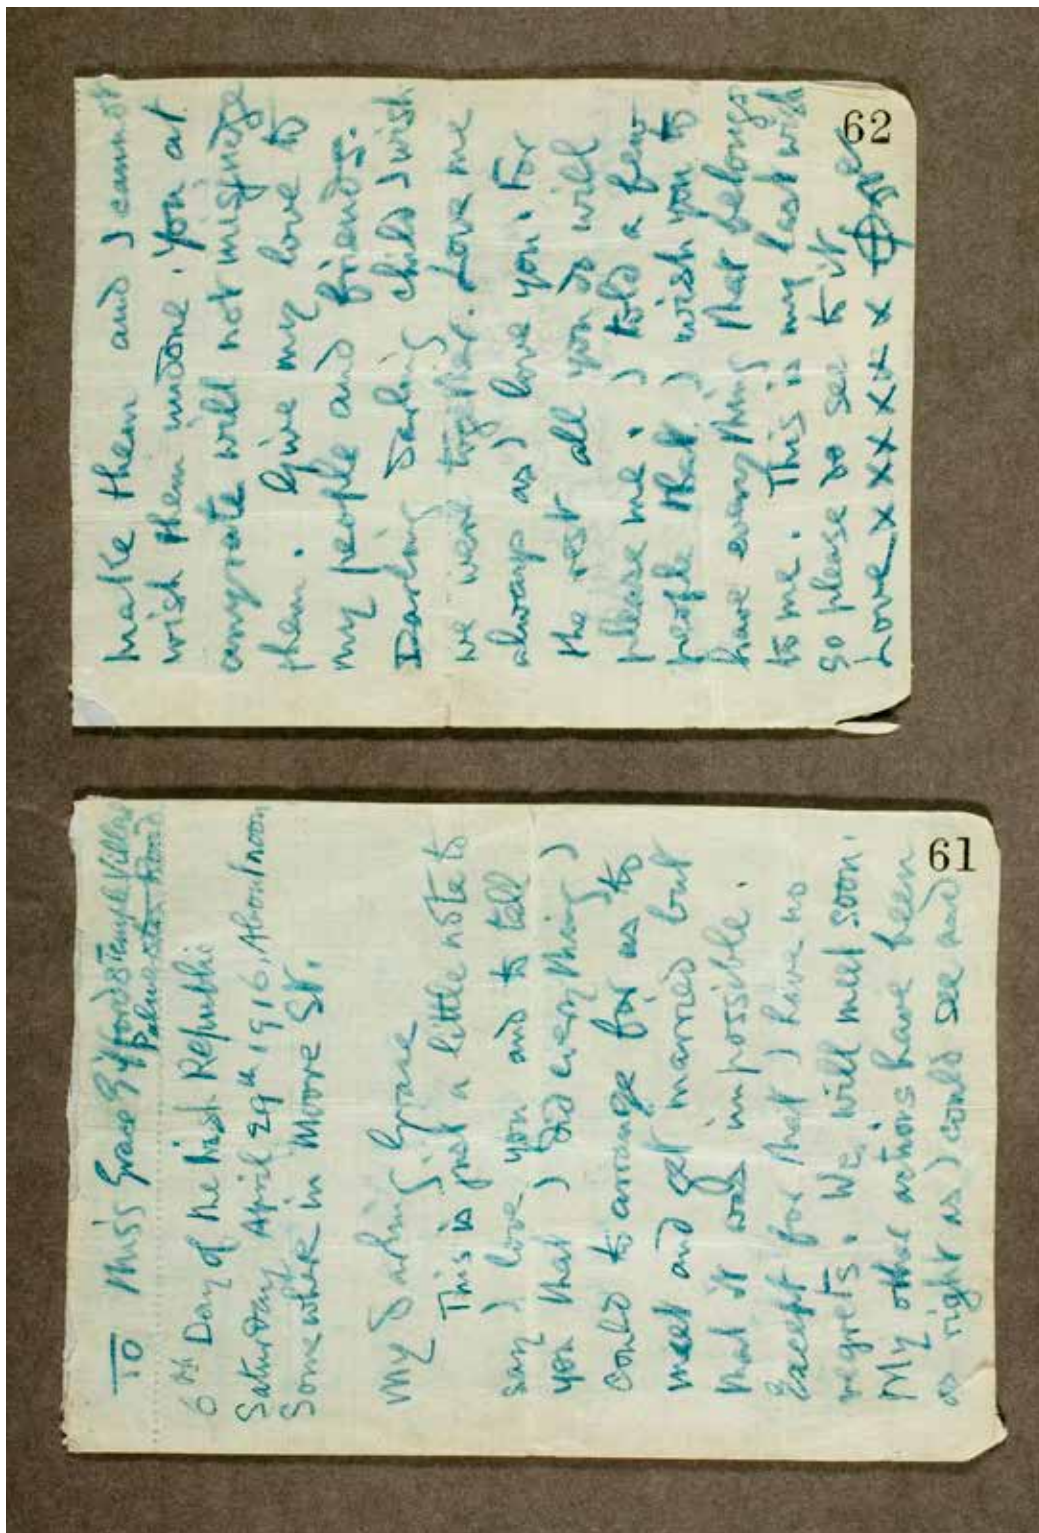 To Miss Grace Gifford 8 Temple Villas
Palmerston Road
6th Day of the Irish Republic
Saturday April 29th 1916, About noon
Somewhere in Moore St.
My Darling Grace
This is just a little note to
say I love you and to tell
you that I did everything I
could to arrange for us to
meet and get married but
that it was impossible.
Except for that I have no
regrets. We will meet soon.
My other actions have been
as right as I could see and
61
make them and I cannot
wish them undone. You at
anyrate will not misjudge
them. Give my love to
my people and friends.
Darling Darling child I wish
we were together. Love me
always as I love you. For
the rest all you do will
please me. I told a few
people that I wish you to
have everything that belongs
to me. This is my last wish
so please do see to it
Love x x x x x x
62